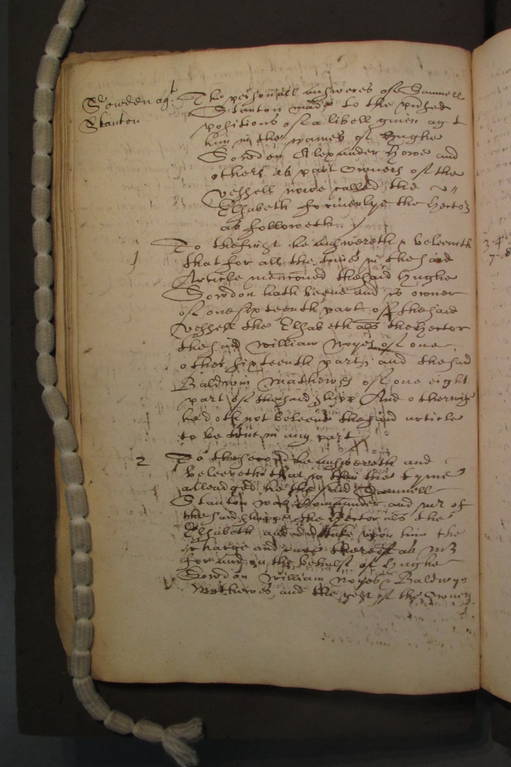 Sowdon agt
Stanton
The personall answeres of Samuell
Stanton made to the pnded
positions of a libell given agt
him in the names of Hughe
Sowdon Alexander Howe and
others as part owners of the
vessell nowe called the
Elizabeth formerlye the Hector
as followeth
1
To the first he answereth & beleeveth
that for all the tyme in the said
Article mencioned the said Hughe
Sowdon hath beene and is owner
of one sixteenth part of the said
vessell the Elizabeth als the Hector
the said William Noyes of one
other sixteenth part, and the said
Baldwin Mathewes of one eight
part of the said shipp And otherwise
he doth not beleeve the said article
to be true in any part
2
To the second he answereth and
beleeveth that in the tyme
alleadged he the said Samuell
Stanton was Commander and mr of
the said shippe the Hector als the
Elizabeth and did take upon him the
charge and thereof as mr
for and on the behalf of Hughe
Sowdon William Noyes Baldwyn
Mathewes and the rest of the owners